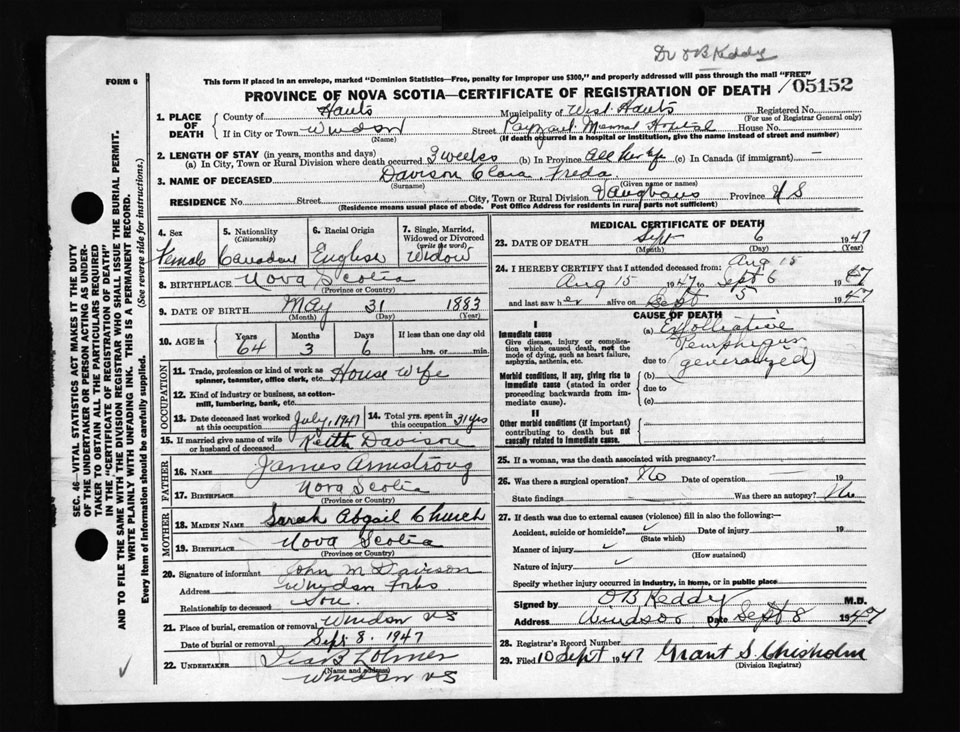 Dr O B Keddy
FORM 6
This form if placed in an envelope, marked "Dominion Statistics—Free, penalty for improper use $300," and properly addressed will pass through the mail "FREE"
PROVINCE OF NOVA SCOTIA—CERTIFICATE OF REGISTRATION OF DEATH / 05152
SEC. 46—VITAL STATISTICS ACT MAKES IT THE DUTY
OF THE UNDERTAKER OR PERSON ACTING AS UNDER-
TAKER TO OBTAIN ALL THE PARTICULARS REQUIRED
IN THE "CERTIFICATE OF REGISTRATION OF DEATH"
AND TO FILE THE SAME WITH THE DIVISION REGISTRAR WHO SHALL ISSUE THE BURIAL PERMIT.
WRITE PLAINLY WITH UNFADING INK. THIS IS A PERMANENT RECORD.
Every item of information should be carefully supplied. (See reverse side for instructions.)
1. PLACE OF DEATH
County of Hants Municipality of West Hants Registered No.
(For use of Registrar General only)
If in City or Town Windsor Street Payzant Memorial Hospital House No.
(Name) (If death occurred in a hospital or institution, give the name instead of street and number)
2. LENGTH OF STAY (in years, months and days)
(a) In City, Town or Rural Division where death occurred 3 weeks (b) In Province All her life (c) In Canada (if immigrant) —
3. NAME OF DECEASED Davison Clara Freda
(Surname) (Given name or names)
RESIDENCE No. Street City, Town or Rural Division Vaughans Province N S
(Residence means usual place of abode. Post Office Address for residents in rural parts not sufficient)
4. Sex Female
5. Nationality (Citizenship) Canadian
6. Racial Origin English
7. Single, Married, Widowed or Divorced (write the word) Widow
8. BIRTHPLACE Nova Scotia
(Province or Country)
9. DATE OF BIRTH May 31 1883
(Month) (Day) (Year)
10. AGE in Years Months Days If less than one day old
64 3 6 hrs. or min.
OCCUPATION
11. Trade, profession or kind of work as House wife
spinner, teamster, office clerk, etc.
12. Kind of industry or business, as cotton-
mill, lumbering, bank, etc.
13. Date deceased last worked at this occupation July, 1947
14. Total yrs. spent in this occupation 31 yrs
15. If married give name of wife or husband of deceased Keith Davison
FATHER
16. NAME James Armstrong
17. BIRTHPLACE Nova Scotia
(Province or Country)
MOTHER
18. MAIDEN NAME Sarah Abgail Church
19. BIRTHPLACE Nova Scotia
(Province or Country)
20. Signature of informant John M Davison
Address Windsor Forks
Relationship to deceased Son
21. Place of burial, cremation or removal Windsor NS
Date of burial or removal Sept 8. 1947
22. UNDERTAKER
(Name and address)
Windsor NS
MEDICAL CERTIFICATE OF DEATH
23. DATE OF DEATH Sept 6 1947
(Month) (Day) (Year)
24. I HEREBY CERTIFY that I attended deceased from: Aug 15
Aug 15 1947 to Sept 6 1947
and last saw her alive on Sept 5 1947
CAUSE OF DEATH
I
Immediate cause
Give disease, injury or complica-
tion which caused death, not the
mode of dying, such as heart failure,
asphyxia, asthenia, etc.
(a) Exfolliative
Pemphigus
due to generalized)
Morbid conditions, if any, giving rise to
immediate cause (stated in order
proceeding backwards from im-
mediate cause).
(b)
due to
(c)
II
Other morbid conditions (if important)
contributing to death but not
causally related to immediate cause.
25. If a woman, was the death associated with pregnancy?
26. Was there a surgical operation? No Date of operation 19
State findings Was there an autopsy? No
27. If death was due to external causes (violence) fill in also the following:—
Accident, suicide or homicide? ✓ Date of injury 19
(State which)
Manner of injury ✓
(How sustained)
Nature of injury ✓
Specify whether injury occurred in industry, in home, or in public place
Signed by O B Keddy M.D.
Address Windsor Date Sept 8 1947
28. Registrar's Record Number
29. Filed 10 Sept 1947 Grant S. Chisholm
(Division Registrar)